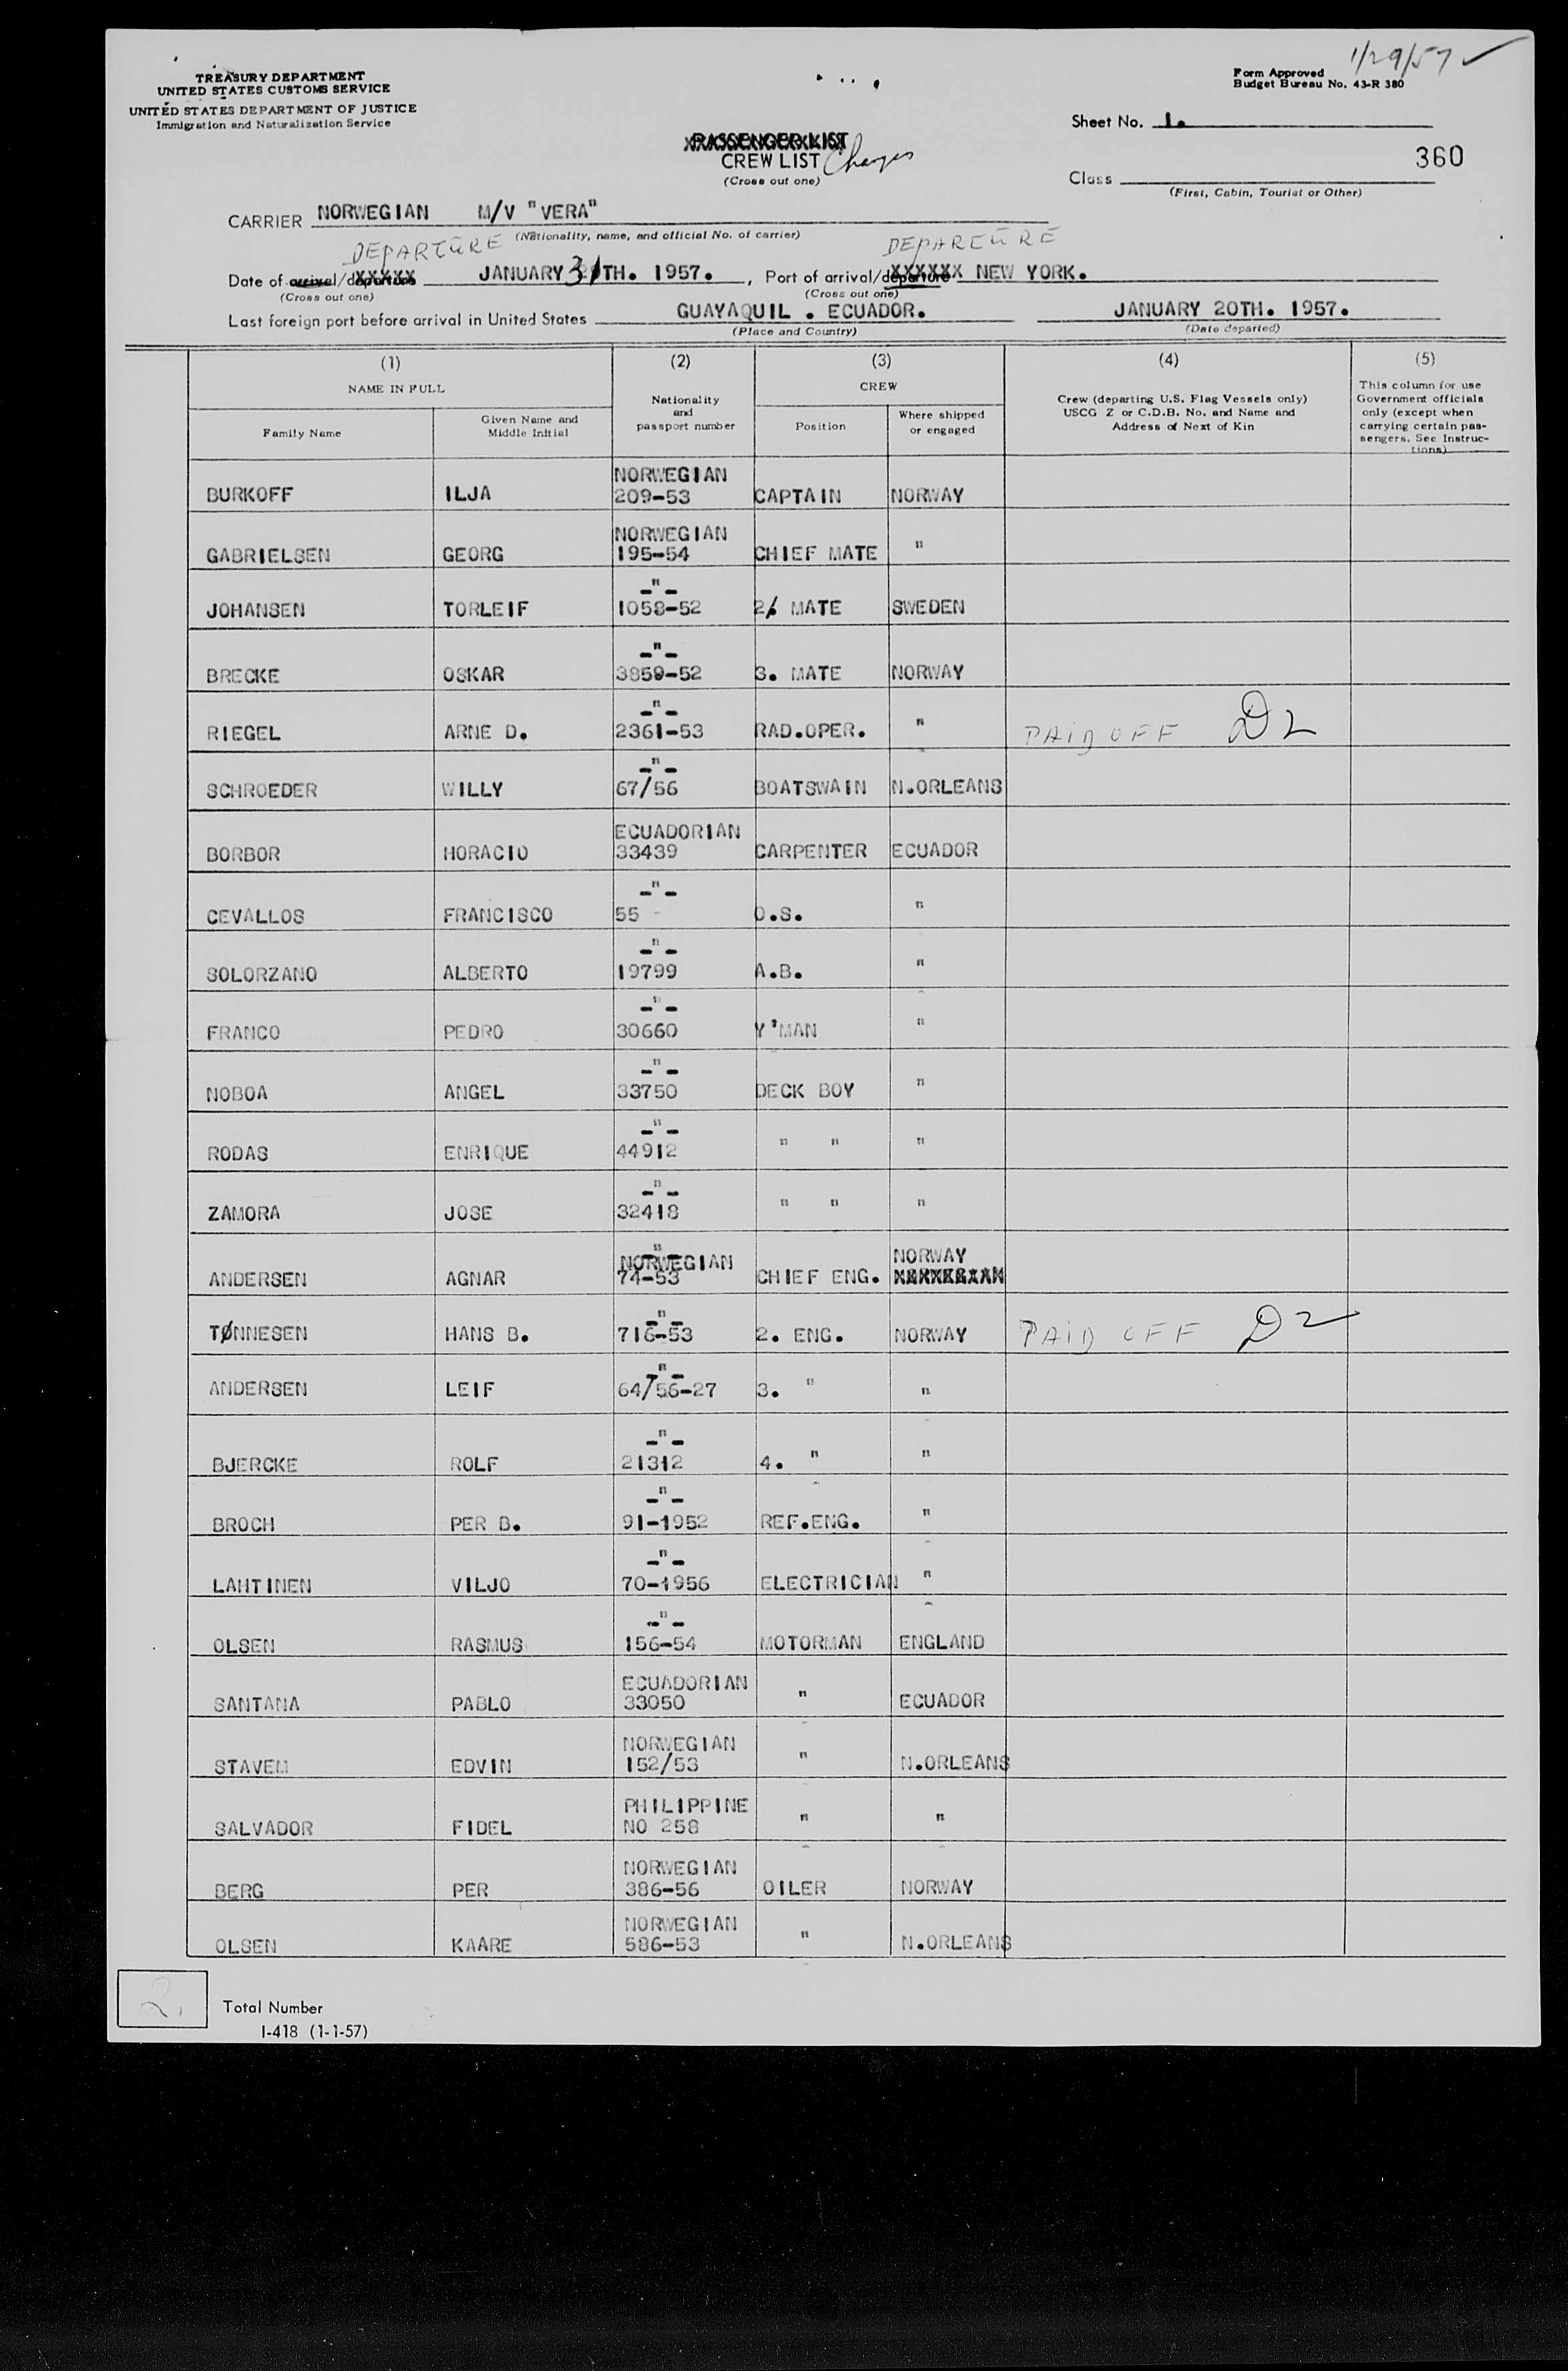 1/29/57 ✓
TREASURY DEPARTMENT
UNITED STATES CUSTOMS SERVICE
UNITED STATES DEPARTMENT OF JUSTICE
Immigration and Naturalization Service
Form Approved
Budget Bureau No. 43-R 380
Sheet No. 1.
PASSENGER LIST
CREW LIST
(Cross out one)
360
Class
(First, Cabin, Tourist or Other)
CARRIER NORWEGIAN M/V "VERA"
(Nationality, name, and official No. of carrier)
DEPARTURE DEPARTURE
Date of arrival/departure JANUARY 31TH. 1957. , Port of arrival/departure NEW YORK.
(Cross out one) (Cross out one)
Last foreign port before arrival in United States GUAYAQUIL . ECUADOR. JANUARY 20TH. 1957.
(Place and Country) (Date departed)
(1) (2) (3) (4) (5)
NAME IN FULL
Family Name
Given Name and
Middle Initial
Nationality
and
passport number
CREW
Position
Where shipped
or engaged
Crew (departing U.S. Flag Vessels only)
USCG Z or C.D.B. No. and Name and
Address of Next of Kin
This column for use
Government officials
only (except when
carrying certain pas-
sengers. See Instruc-
tions)
NORWEGIAN
BURKOFF ILJA 209-53 CAPTAIN NORWAY
NORWEGIAN
GABRIELSEN GEORG 195-54 CHIEF MATE "
-"-
JOHANSEN TORLEIF 1058-52 2. MATE SWEDEN
-"-
BRECKE OSKAR 3859-52 3. MATE NORWAY
-"-
RIEGEL ARNE D. 2361-53 RAD.OPER. " PAID OFF D2
-"-
SCHROEDER WILLY 67/56 BOATSWAIN N.ORLEANS
ECUADORIAN
BORBOR HORACIO 33439 CARPENTER ECUADOR
-"-
CEVALLOS FRANCISCO 55 - O.S. "
-"-
SOLORZANO ALBERTO 19799 A.B. "
-"-
FRANCO PEDRO 30660 Y'MAN "
-"-
NOBOA ANGEL 33750 DECK BOY "
-"-
RODAS ENRIQUE 44912 " " "
-"-
ZAMORA JOSE 32418 " " "
NORWEGIAN NORWAY
ANDERSEN AGNAR 74-53 CHIEF ENG.
-"-
TØNNESEN HANS B. 716-53 2. ENG. NORWAY PAID OFF D2
-"-
ANDERSEN LEIF 64/56-27 3. " "
-"-
BJERCKE ROLF 21312 4. " "
-"-
BROCH PER B. 91-1952 REF.ENG. "
-"-
LAHTINEN VILJO 70-1956 ELECTRICIAN "
-"-
OLSEN RASMUS 156-54 MOTORMAN ENGLAND
ECUADORIAN
SANTANA PABLO 33050 " ECUADOR
NORWEGIAN
STAVEM EDVIN 152/53 " N.ORLEANS
PHILIPPINE
SALVADOR FIDEL NO 258 " "
NORWEGIAN
BERG PER 386-56 OILER NORWAY
NORWEGIAN
OLSEN KAARE 586-53 " N.ORLEANS
2. Total Number
I-418 (1-1-57)